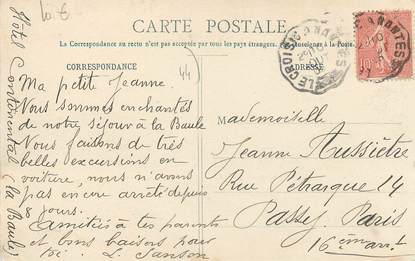 10 €
CARTE POSTALE
La Correspondance au recto n'est pas acceptée par tous les pays étrangers. Renseignements à la Poste.
CORRESPONDANCE
ADRESSE
44
Hôtel Continental (la Baule)
Ma petite Jeanne.
Nous sommes enchantés
de notre séjour à la Baule
Nous faisons de très
belles excursions en
voiture, nous n'avons
pas encore arrêté depuis
8 jours.
Amitiés à tes parents
et bons baisers pour
toi. L. Sanson
LE CROISIC A NANTES
A NANTES
Mademoiselle
Jeanne Aussiètre
Rue Pétrarque 14
Passy. Paris
16ème arrt